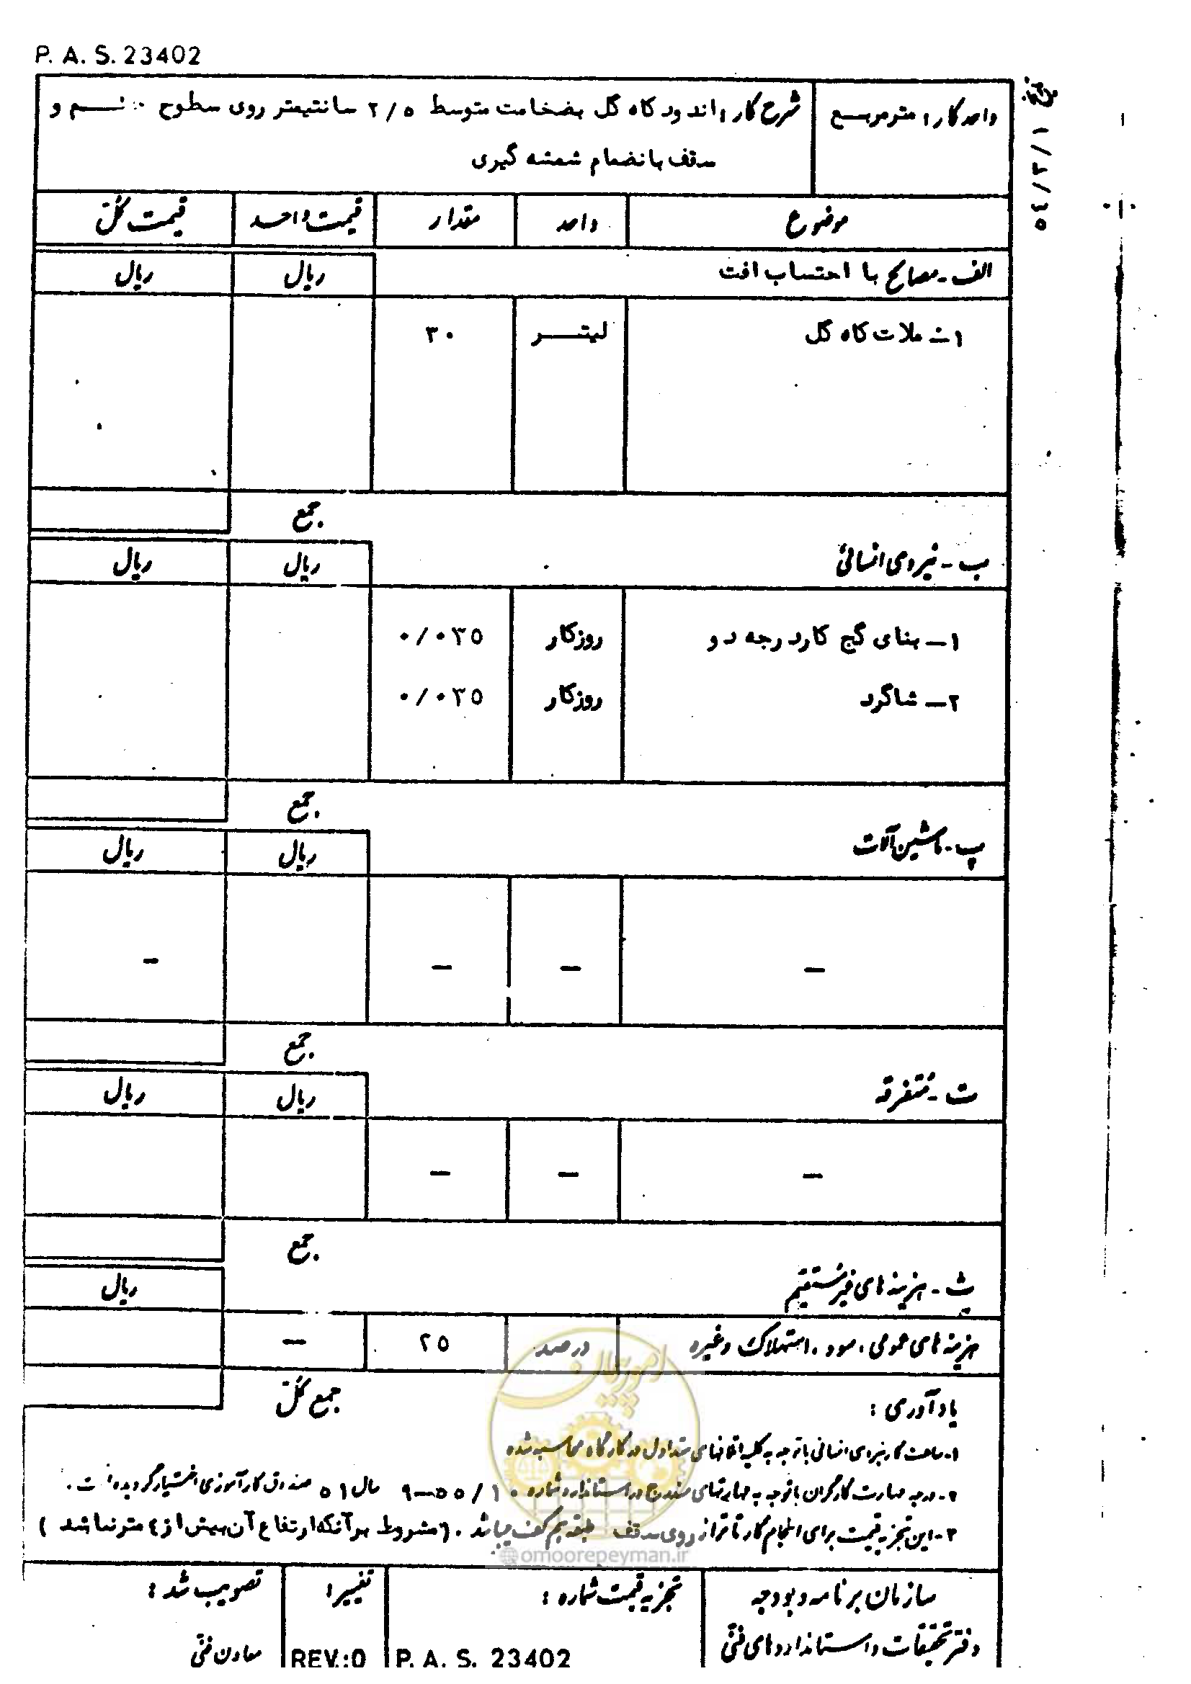 P. A. S. 23402
تاریخ ٥٤/٣/١
واحد کار : مترمربـع
شرح کار : اندود کاه گل بضخامت متوسط ٢/٥ سانتیمتر روی سطوح و
سقف با نضمام شمشه گیری
موضوع واحد مقدار قیمت واحد قیمت کل
الف - مصالح با احتساب افت ریال ریال
١- ملات کاه گل لیتـــر ٣٠
جمع
ب - نیروی انسانی ریال ریال
١ــ بنای گچ کار درجه دو روزکار ٠/٠٣٥
٢ــ شاگرد روزکار ٠/٠٣٥
جمع
پ - ماشین آلات ریال ریال
– – – –
جمع
ت - متفرقه ریال ریال
– – –
جمع
ث - هزینه های غیرمستقیم ریال
هزینه های عمومی ، سود ، استهلاک وغیره درصد ٢٥ –
جمع کل
یادآوری :
١- ساعت کار نیروی انسانی با توجه به کلیه اتلافهای متداول در کارگاه محاسبه شده
٢- درجه مهارت کارگران با توجه به مهارتهای مندرج در استاندارد شماره سال ٥١ صندوق کارآموزی اختیار گردیده است .
٣- این تجزیه قیمت برای انجام کار تا تراز روی سقف طبقه هم کف میباشد . (مشروط بر آنکه ارتفاع آن بیش از ٤ متر نباشد )
امور پیمان
@omoorepeyman.ir
سازمان برنامه و بودجه
دفتر تحقیقات و استانداردهای فنی
تجزیه قیمت شماره :
P. A. S. 23402
تغییر :
REV.:0
تصویب شد :
معاون فنی